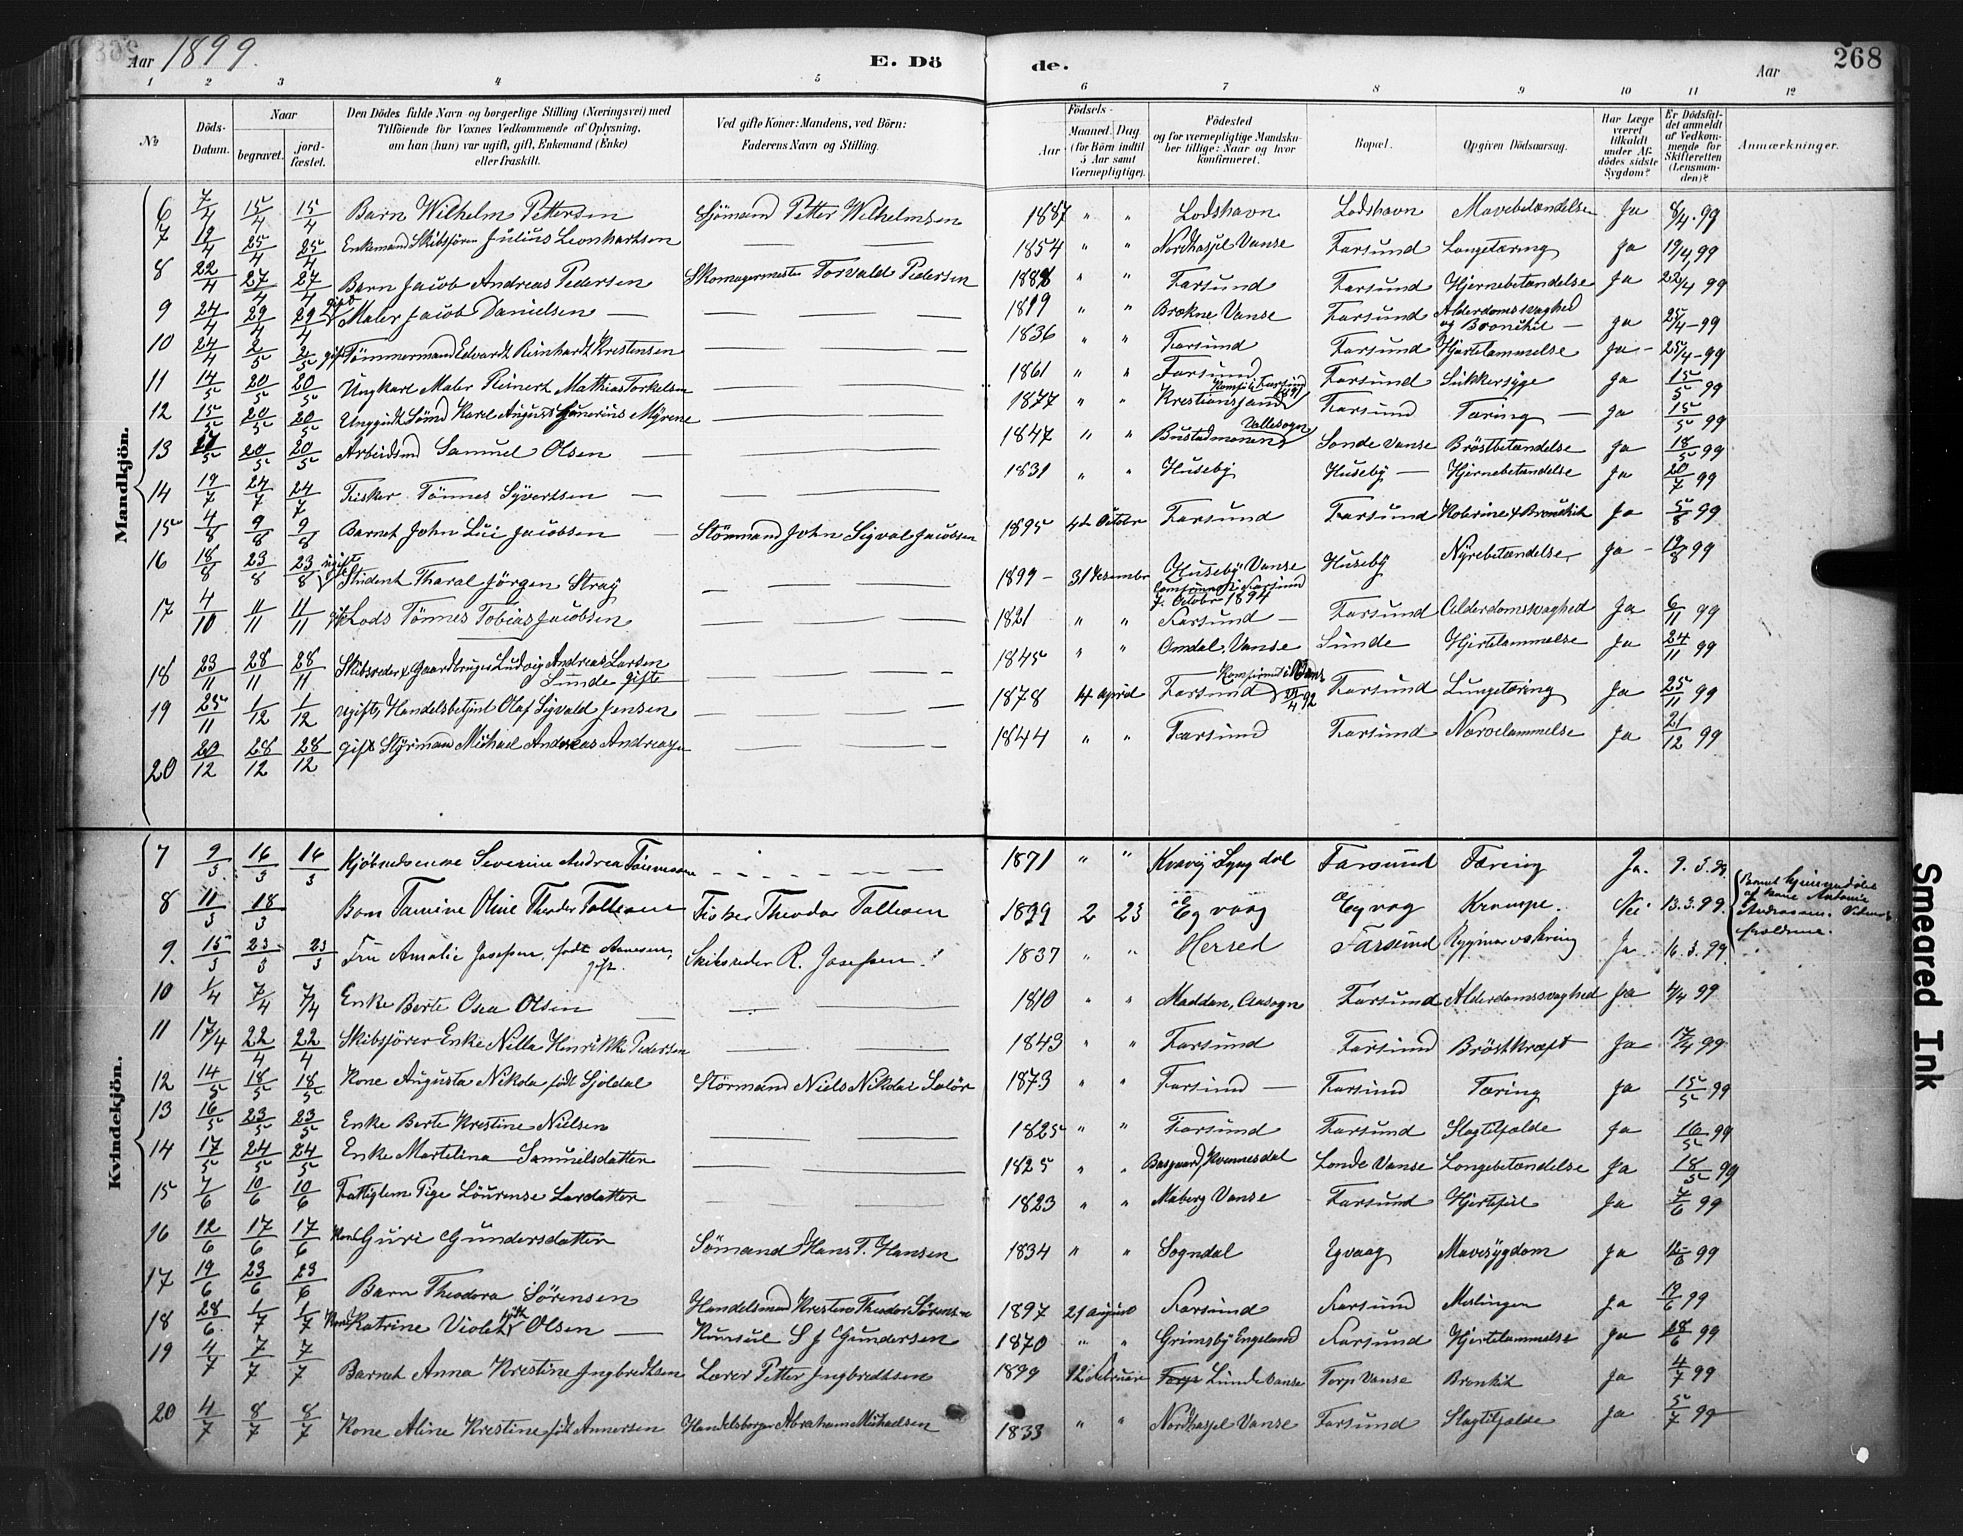 Aar 1899.
E. Döde.
Aar
268
1 2 3 4 5 6 7 8 9 10 11 12
No
Döds-Datum.
Naar
begravet.
jord-fæstet.
Den Dödes fulde Navn og borgerlige Stilling (Næringsvei) med
Tilföiende for Voxnes Vedkommende af Oplysning,
om han (hun) var ugift, gift, Enkemand (Enke)
eller fraskilt.
Ved gifte Koner: Mandens, ved Börn:
Faderens Navn og Stilling.
Födsels-
Aar
Maaned. Dag
(for Börn indtil
5 Aar samt
Værnepligtige).
Födested
og for værnepligtige Mandska-
ber tillige: Naar og hvor
konfirmeret.
Bopæl.
Opgiven Dödsaarsag.
Har Læge
været
tilkaldt
under Af-
dödes sidste
Sygdom?
Er Dödsfal-
det anmeldt
af Vedkom-
mende for
Skifteretten
(Lensman-
den)?
Anmærkninger.
Mandkjön.
6 7/4 15/4 15/4 Barn Wilhelm Pettersen Sjömand Petter Wilhelmsen 1887 " " Lodshavn Lodshavn Mavebetændelse Ja 8/4 99
7 19/4 25/4 25/4 Enkemand Skibsförer Julius Leonhartsen 1854 " " Nordhassel Vanse Farsund Lungetæring Ja 19/4 99
8 22/4 27/4 27/4 Barn Jacob Andreas Pedersen Skomagermester Torvald Pedersen 1888 " " Farsund Farsund Hjernebetændelse Ja 22/4 99
9 24/4 29/4 29/4 gift Maler Jacob Danielsen 1819 " " Brekne Vanse Farsund Alderdomssvaghed og Bronkit Ja 25/4-99
10 24/4 2/5 2/5 gift Tömmermand Edvardt Reinhardt Kristensen 1836 " " Farsund Farsund Hjertelammelse Ja 25/4-99
11 14/5 20/5 20/5 Ungkarl Maler Reinert Mathias Torkelsen 1861 " " Farsund Farsund Sukkersyge Ja 15/5 99
12 15/5 20/5 20/5 Unggudt Sömd Karl August Mÿrene 1877 " " Kristiansand Farsund Tæring Ja 15/5 99
13 17/5 20/5 20/5 Arbeidsmd Samuel Olsen 1847 " " Vallesogn Sonde Vanse Bröstbetændelse Ja 18/5 99
14 19/7 24/7 24/7 Fisker Tönnes Syvertsen 1831 " Huseby Huseby Hjernebetændelse Ja 20/7 99
15 4/8 9/8 9/8 Barnet John Jacobsen Störmand John Sigval Jacobsen 1895 4de October Farsund Farsund Bronkit Ja 5/8 99
16 18/8 23/8 23/8 ugift Student Tharal Jörgen Stray 1899 31 Desember Huseby Vanse 7. October 1894 Huseby Nyrebetændelse Ja 19/8 99
17 4/10 11/11 11/11 gift Lods Tönnes Tobias Jacobsen 1821 " " Farsund Farsund Alderdomssvaghed Ja 6/11 99
18 23/11 28/11 28/11 Skibsreder & Gaardbruger Ludvig Andreas Larsen Sunde gift 1845 " " Omdal Vanse Sunde Hjertelammelse Ja 24/11 99
19 25/11 1/12 1/12 ugift, Handelsbetjent Olaf Sigvald Jensen 1878 4 April Farsund Farsund Lungetæring Ja 25/11 99
20 20/12 28/12 28/12 gift Styrmand Michael Andreas Andreasen 1844 " " Farsund Farsund Nervelammelse Ja 21/12 99
Kvindekjön.
7 9/3 16/3 16/3 Severine Andrea Tönnessen 1871 " " Lyngdal Farsund Tæring Ja. 9.3.99.
8 11/3 18/3 Barn Tamine Oline Theodor Tollesen Fisker Theodor Tollesen 1899 2 23 Egvaag Egvag Krampe. Nei 13.3.99.
9. 15/3 23/3 23/3 Fru Amalie Josefsen, født Aanesen, gift. Skibsreder R. Josefsen. 1837 " " Herred Farsund Rygmarvstæring Ja 16.3.99.
10 1/4 7/4 7/4 Enke Berte Osea Olsen 1810 " " Madden, Aasogn Farsund Alderdomssvaghed Ja 4/4 99
11 17/4 22/4 22/4 Skibsförer Enke Nilla Henrikke Pedersen 1843 " " Farsund Farsund Bröstkræft Ja 17/4 99
12 14/5 18/5 18/5 Kone Augusta Nikoda født Sjöldal Störmand Niels Nikolai Salör 1873 " " Farsund Farsund Tæring Ja 15/5 99
13 16/5 23/5 23/5 Enke Berte Kristine Nielsen 1825 " " Farsund Farsund Slagtilfælde Ja 16/5 99
14 17/5 24/5 24/5 Enke Martelina Samuelsdatter 1825 " " Kvinnesdal Londe Vanse Lungebetændelse Ja 18/5 99
15 7/6 10/6 10/6 Fattiglem Pige Löurense Larsdatter 1823 " " Maberg Vanse Farsund Hjertefeil Ja 7/6 99
16 12/6 17/6 17/6 Kone Guri Gundersdatter Sömand Hans T. Hansen 1834 " " Sogndal Egvaag Mavesygdom Ja 12/6 99
17 19/6 23/6 23/6 Barn Theodora Sörensen Handelsmand Kristen Theodor Sörensen 1897 21 August Farsund Farsund Meslinger Ja 19/6 99
18 28/6 1/7 1/7 Kone Katrine Violet født Olsen Konsul S J Gundersen 1870 " " Grimsby Engeland Farsund Hjertelammelse Ja 28/6 99
19 4/7 7/7 7/7 Barnet Anna Kristine Ingbredtsen Lærer Petter Ingbredtsen 1899 12 Februar Lunde Vanse Torp Vanse Bronkit Ja 4/7 99
20 4/7 8/7 8/7 Kone Aline Kristine født Annersen Handelsborger Abraham Michaelsen 1833 " " Nordhassel Vanse Farsund Slagtilfælde Ja 5/7 99
Smeared Ink